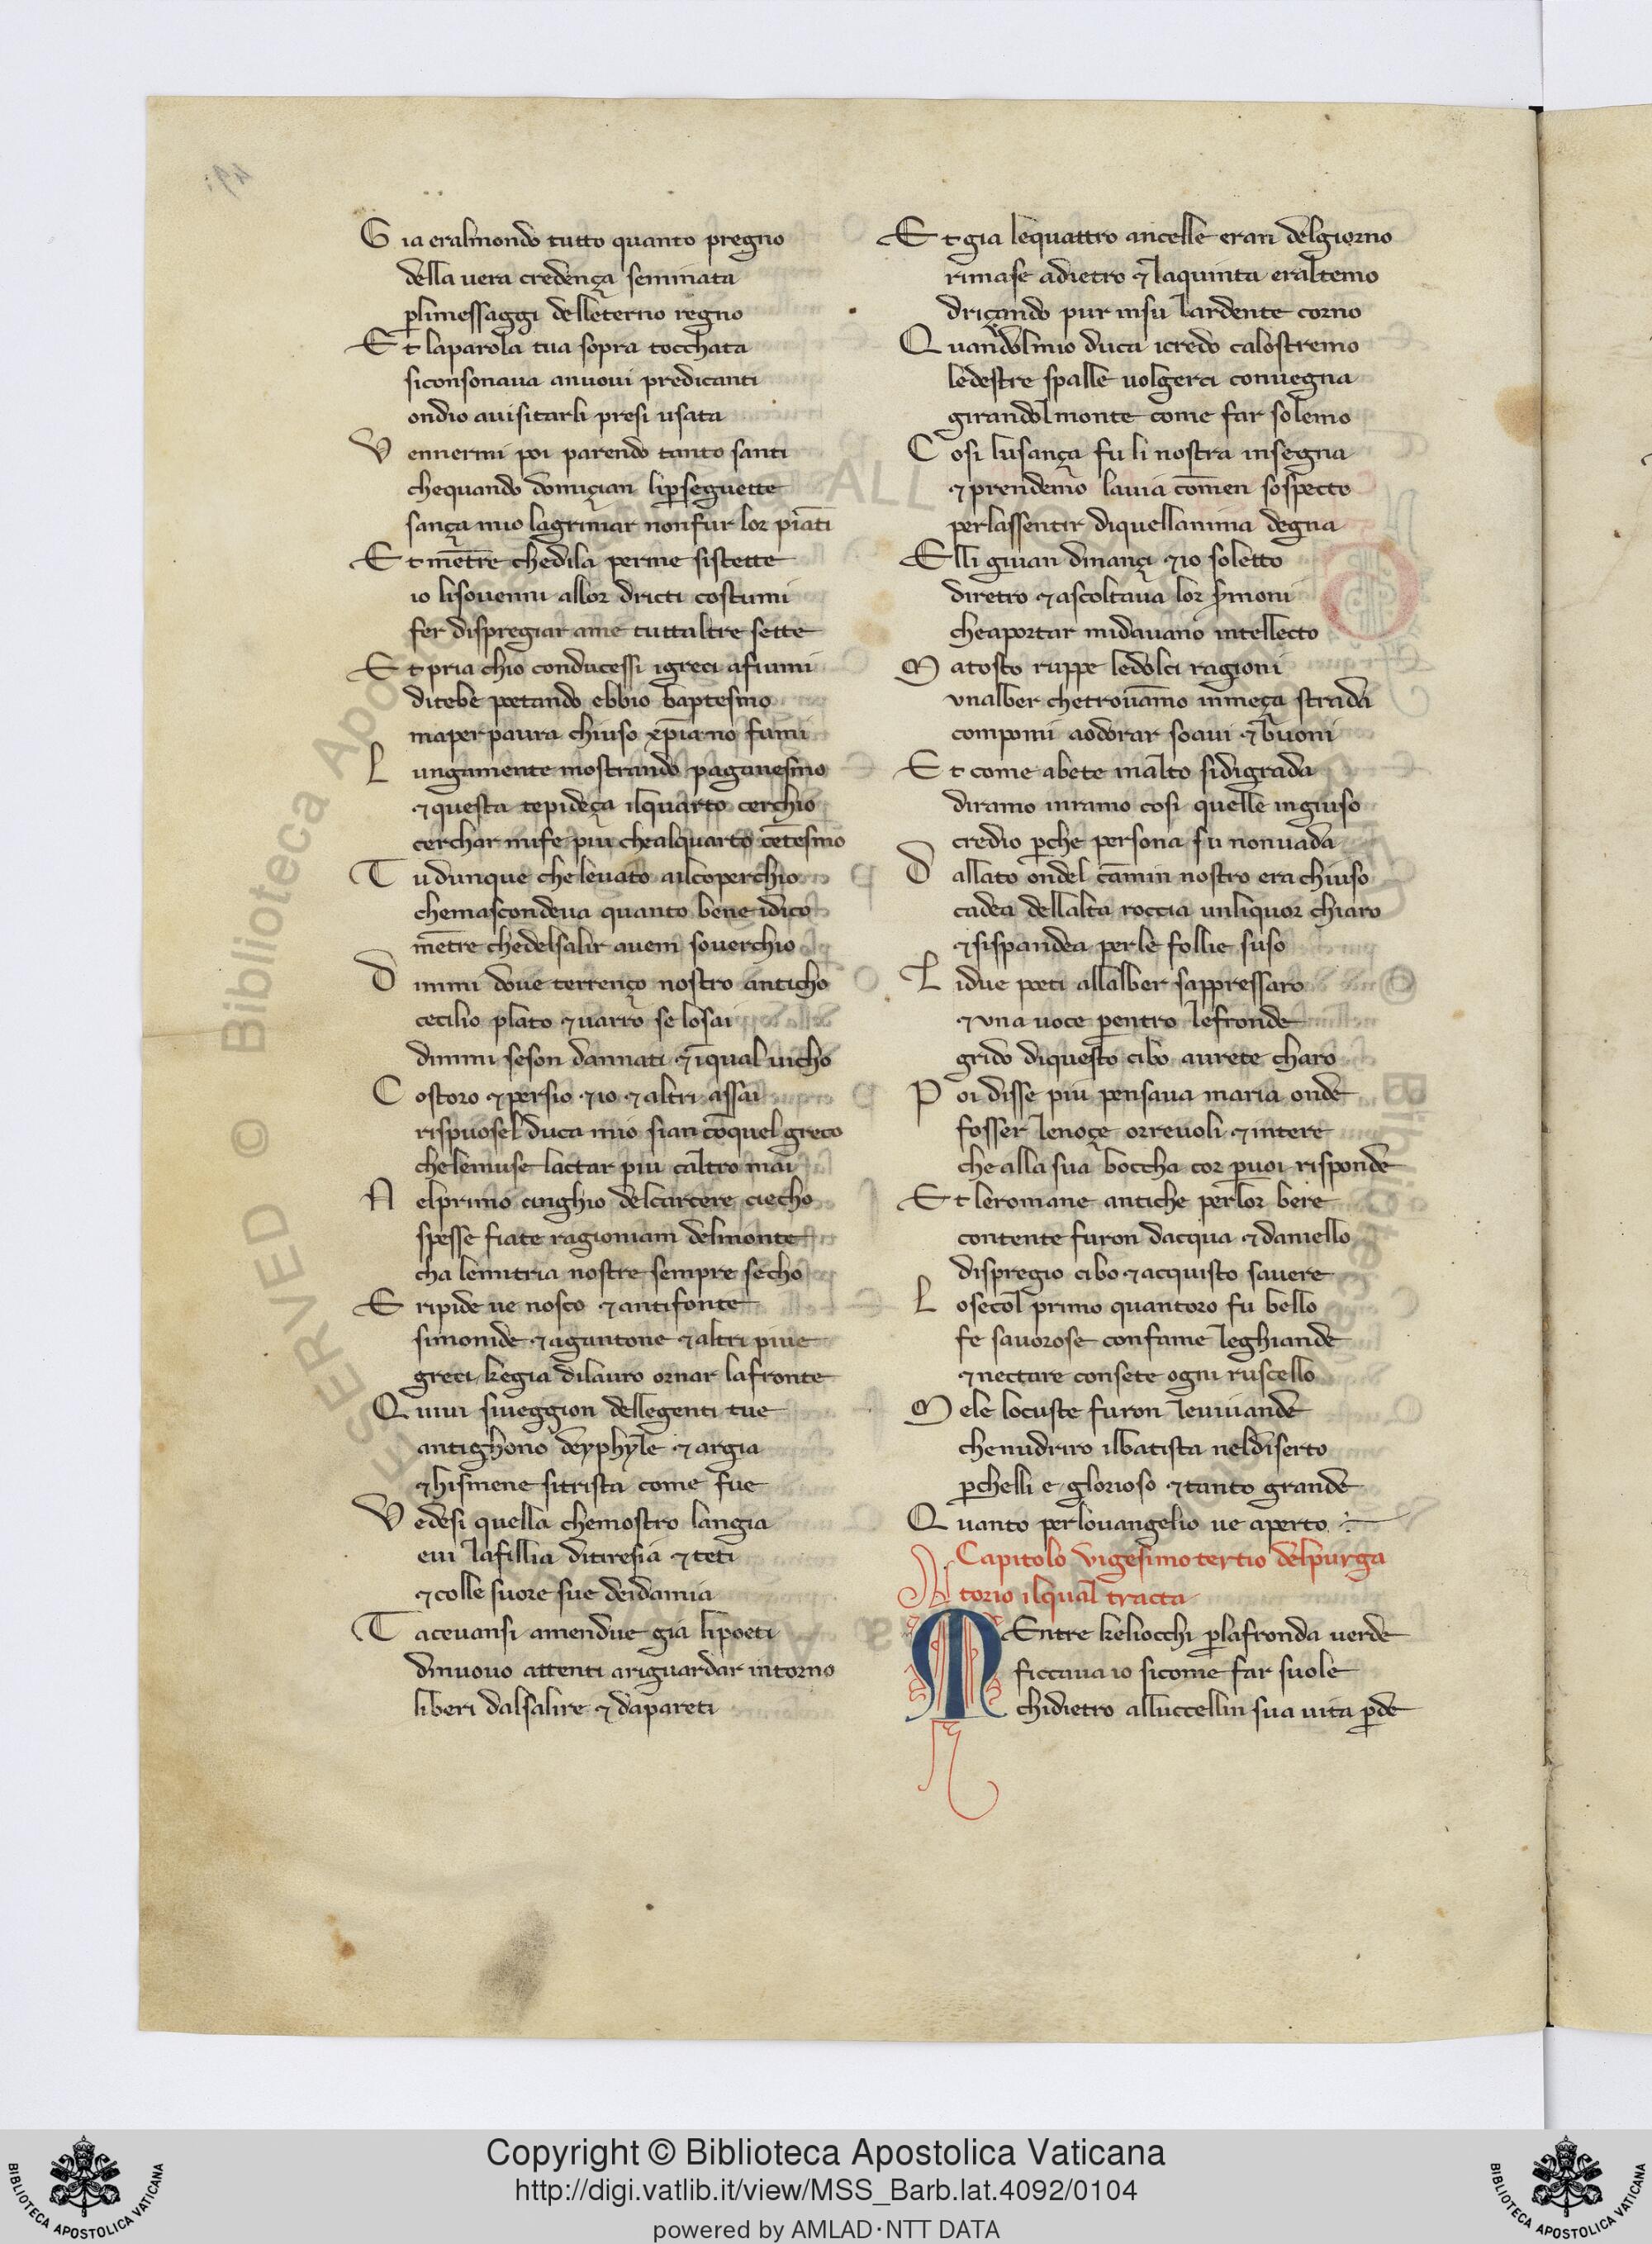 G ia eralmondo tutto quanto pregno
della uera credença seminata
ꝑlimessaggi delleterno regno
E t laparola tua sopra tocchata
siconsonaua anuoui predicanti
ondio auisitarli presi usata
V ennermi poi parendo tanto santi
chequando domiçian liꝑseguette
sança mio lagrimar nonfur lor piāti
E t mētre chedila perme sistette
io lisouenni allor dricti costumi
fer dispregiar ame tuttaltre sette
E t pria chio conducessi igreci afiumi
ditebe poetando ebbio baptesmo
maper paura chiuso xp̄iano fumi
L ungamente mostrando paganesmo
⁊ questa tepideça ilquarto cerchio
cerchar mife piu chealquarto cētesmo
T u dunque che leuato ailcoperchio
chemascondeua quanto bene idico
mētre chedelsalir auem souerchio
D immi doue terrenço nostro anticho
cecilio plato ⁊ uarro se losai
dimmi seson dannati ⁊ īqual uicho
C ostoro ⁊ persio ⁊ io ⁊ altri assai
rispuosel duca mio sian cōquel greco
chelemuse lactar piu caltro mai
N elprimo cinghio delcarcere ciecho
spesse fiate ragioniam delmonte
cha lenutria nostre sempre secho
E ripide ue nosco ⁊ antifonte
simonide ⁊ agantone ⁊ altri piue
greci kegia dilauro ornar lafronte
Q uiui siueggion dellegenti tue
antighono deyphyle ⁊ argia
⁊ hismene sitrista come fue
V edesi quella chemostro langia
eui lafillia ditiresia ⁊ teti
⁊ colle suore sue deidamia
T aceuansi amendue gia lipoeti
dinuouo attenti ariguardar intorno
liberi dalsalire ⁊ dapareti
E t gia lequattro ancelle eran delgiorno
rimase adietro ⁊ laquinta eraltemo
driçando pur insu lardente corno
Q uandolmio duca icredo calostremo
ledestre spalle uolgerci conuegna
girandolmonte come far solemo
C osi lusança fu li nostra insegna
⁊ prendemo lauia cōmen sospecto
perlassentir diquellanima degna
E lli giuan dinançi ⁊ io soletto
diretro ⁊ ascoltaua lor s̄moni
cheaportar midauano intellecto
M atosto ruppe ledolci ragioni
vnalber chetrouāmo īmeça strada
compomi aodorar soaui ⁊ buoni
E t come abete inalto sidigrada
diramo inramo cosi quelle ingiuso
credio ꝑche persona su nonuada
D allato ondel cāmin nostro era chiuso
cadea dellalta roccia unliquor chiaro
⁊ sispandea perle follie suso
L idue poeti allalber sappressaro
⁊ vna uoce ꝑentro lefronde
grido diquesto cibo aurete charo
P oi disse piu pensaua maria onde
fosser lenoçe orreuoli ⁊ intere
che alla sua boccha cor ꝑuoi risponde
E t leromane antiche perlor bere
contente furon dacqua ⁊ daniello
dispregio cibo ⁊ acquisto sauere
L osecol primo quantoro fu bello
fe sauorose confame leghiande
⁊ nectare consete ogni ruscello
M ele locuste furon leuiuande
chenudriro ilbatista neldiserto
ꝑchelli e glorioso ⁊ tanto grande
Q uanto perlouangelio ue aperto
Capitolo vigesimo tertio delpurga
torio ilqual tracta
M Entre keliocchi ꝑlafronda uerde
ficcaua io sicome far suole
chidietro alluccellin sua uita ꝑde
Copyright © Biblioteca Apostolica Vaticana
http://digi.vatlib.it/view/MSS_Barb.lat.4092/0104
powered by AMLAD·NTT DATA
BIBLIOTECA APOSTOLICA VATICANA
BIBLIOTECA APOSTOLICA VATICANA